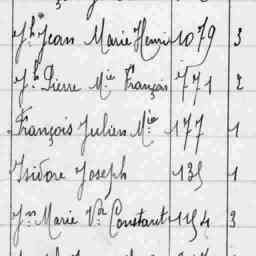 Jh Jean Marie Henri 1079 3
Jh Pierre Mie François 771 2
François Julien Mie 177 1
Isidore Joseph 135 1
Jn Marie Vor Constant 1154 3